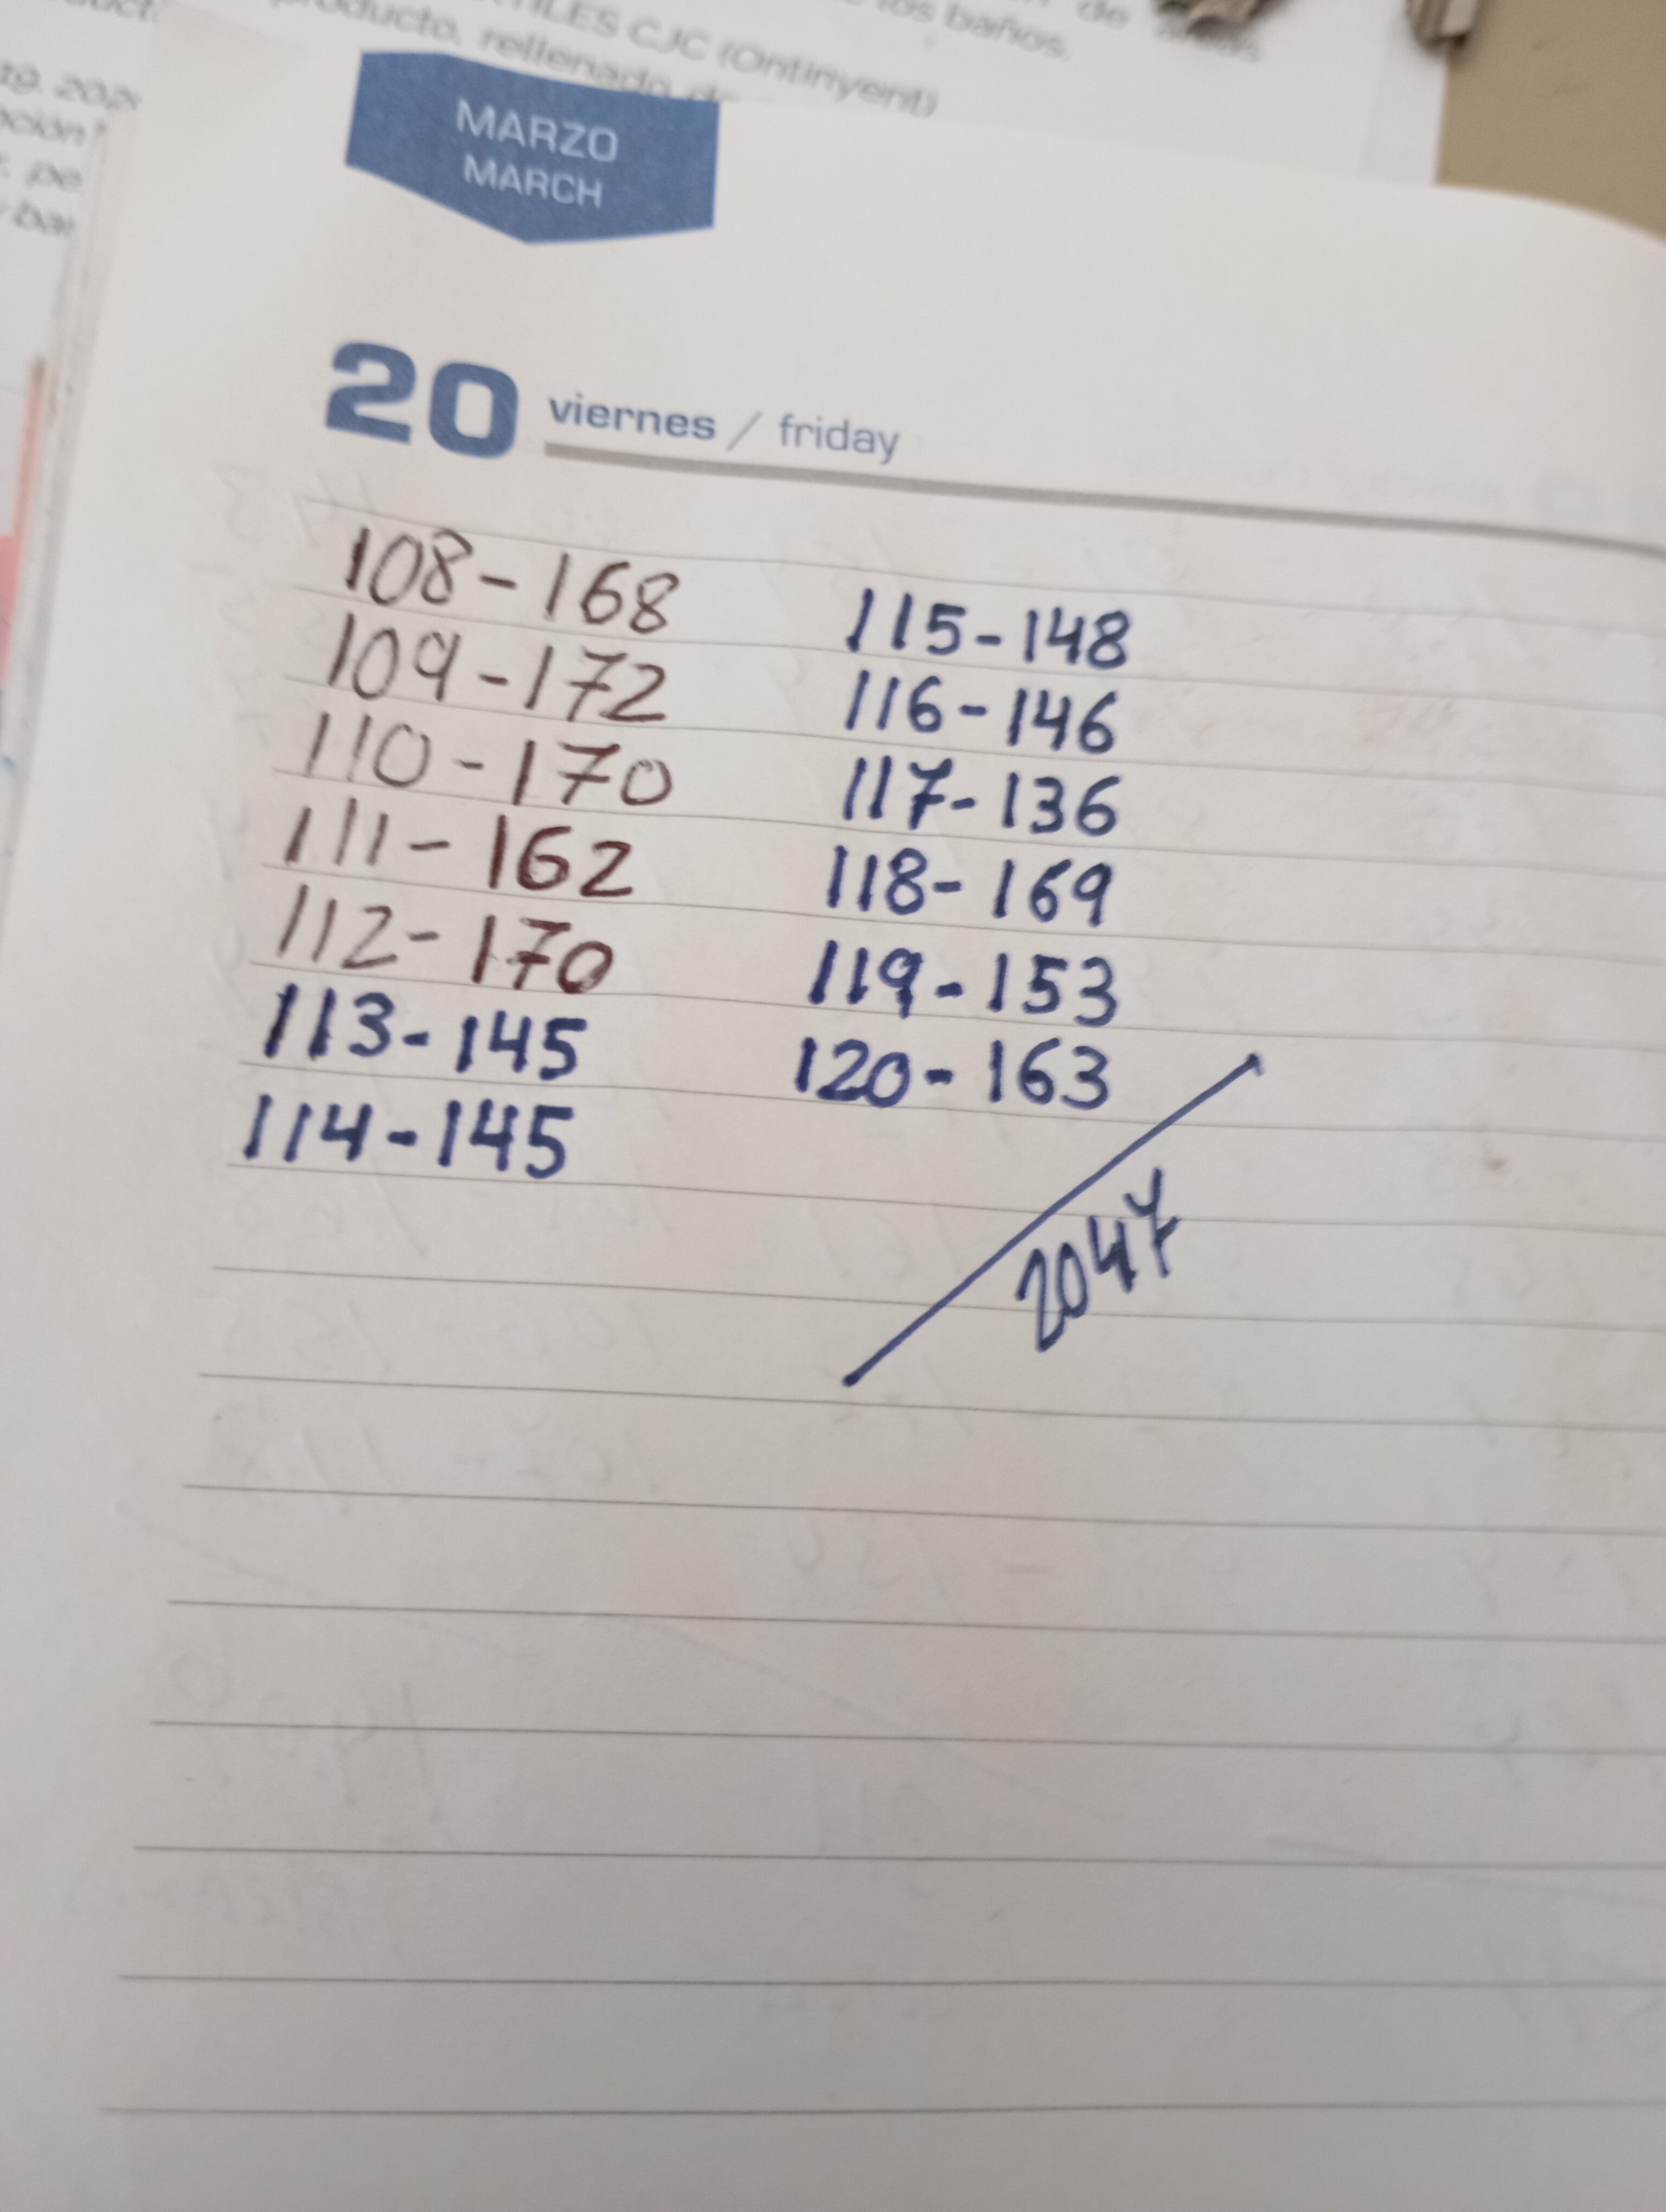 de
los baños.
TILES CJC (Ontinyent)
producto, rellenado de
19. 202
pe
MARZO
MARCH
20 viernes / friday
108-168
109-172
110-170
111-162
112-170
113-145
114-145
115-148
116-146
117-136
118-169
119-153
120-163
2047